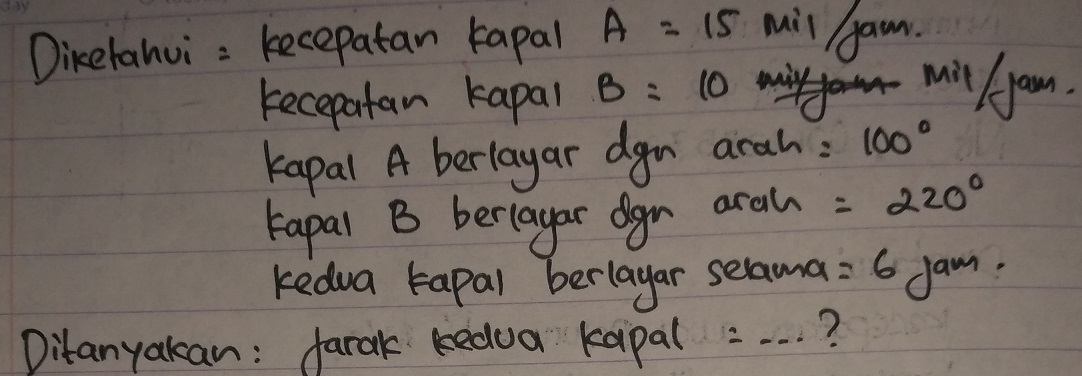 Diketahui = kecepatan kapal A = 15 mil/jam.
kecepatan kapal B = 10 mil/jam.
kapal A berlayar dgn arah = 100°
kapal B berlayar dgn arah = 220°
kedua kapal berlayar selama = 6 jam.
Ditanyakan: Jarak kedua kapal = ... ?